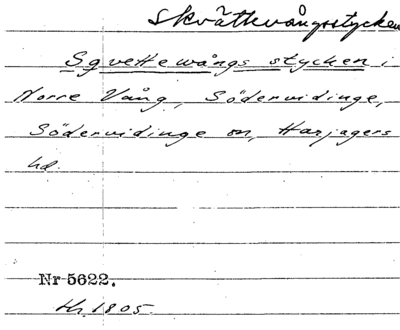 Skvättevångsstycken
Sqvettewångs stycken i
Norre Vång, Södervidinge,
Södervidinge sn, Harjagers
hd.
Nr 5622.
Hr. 1805.